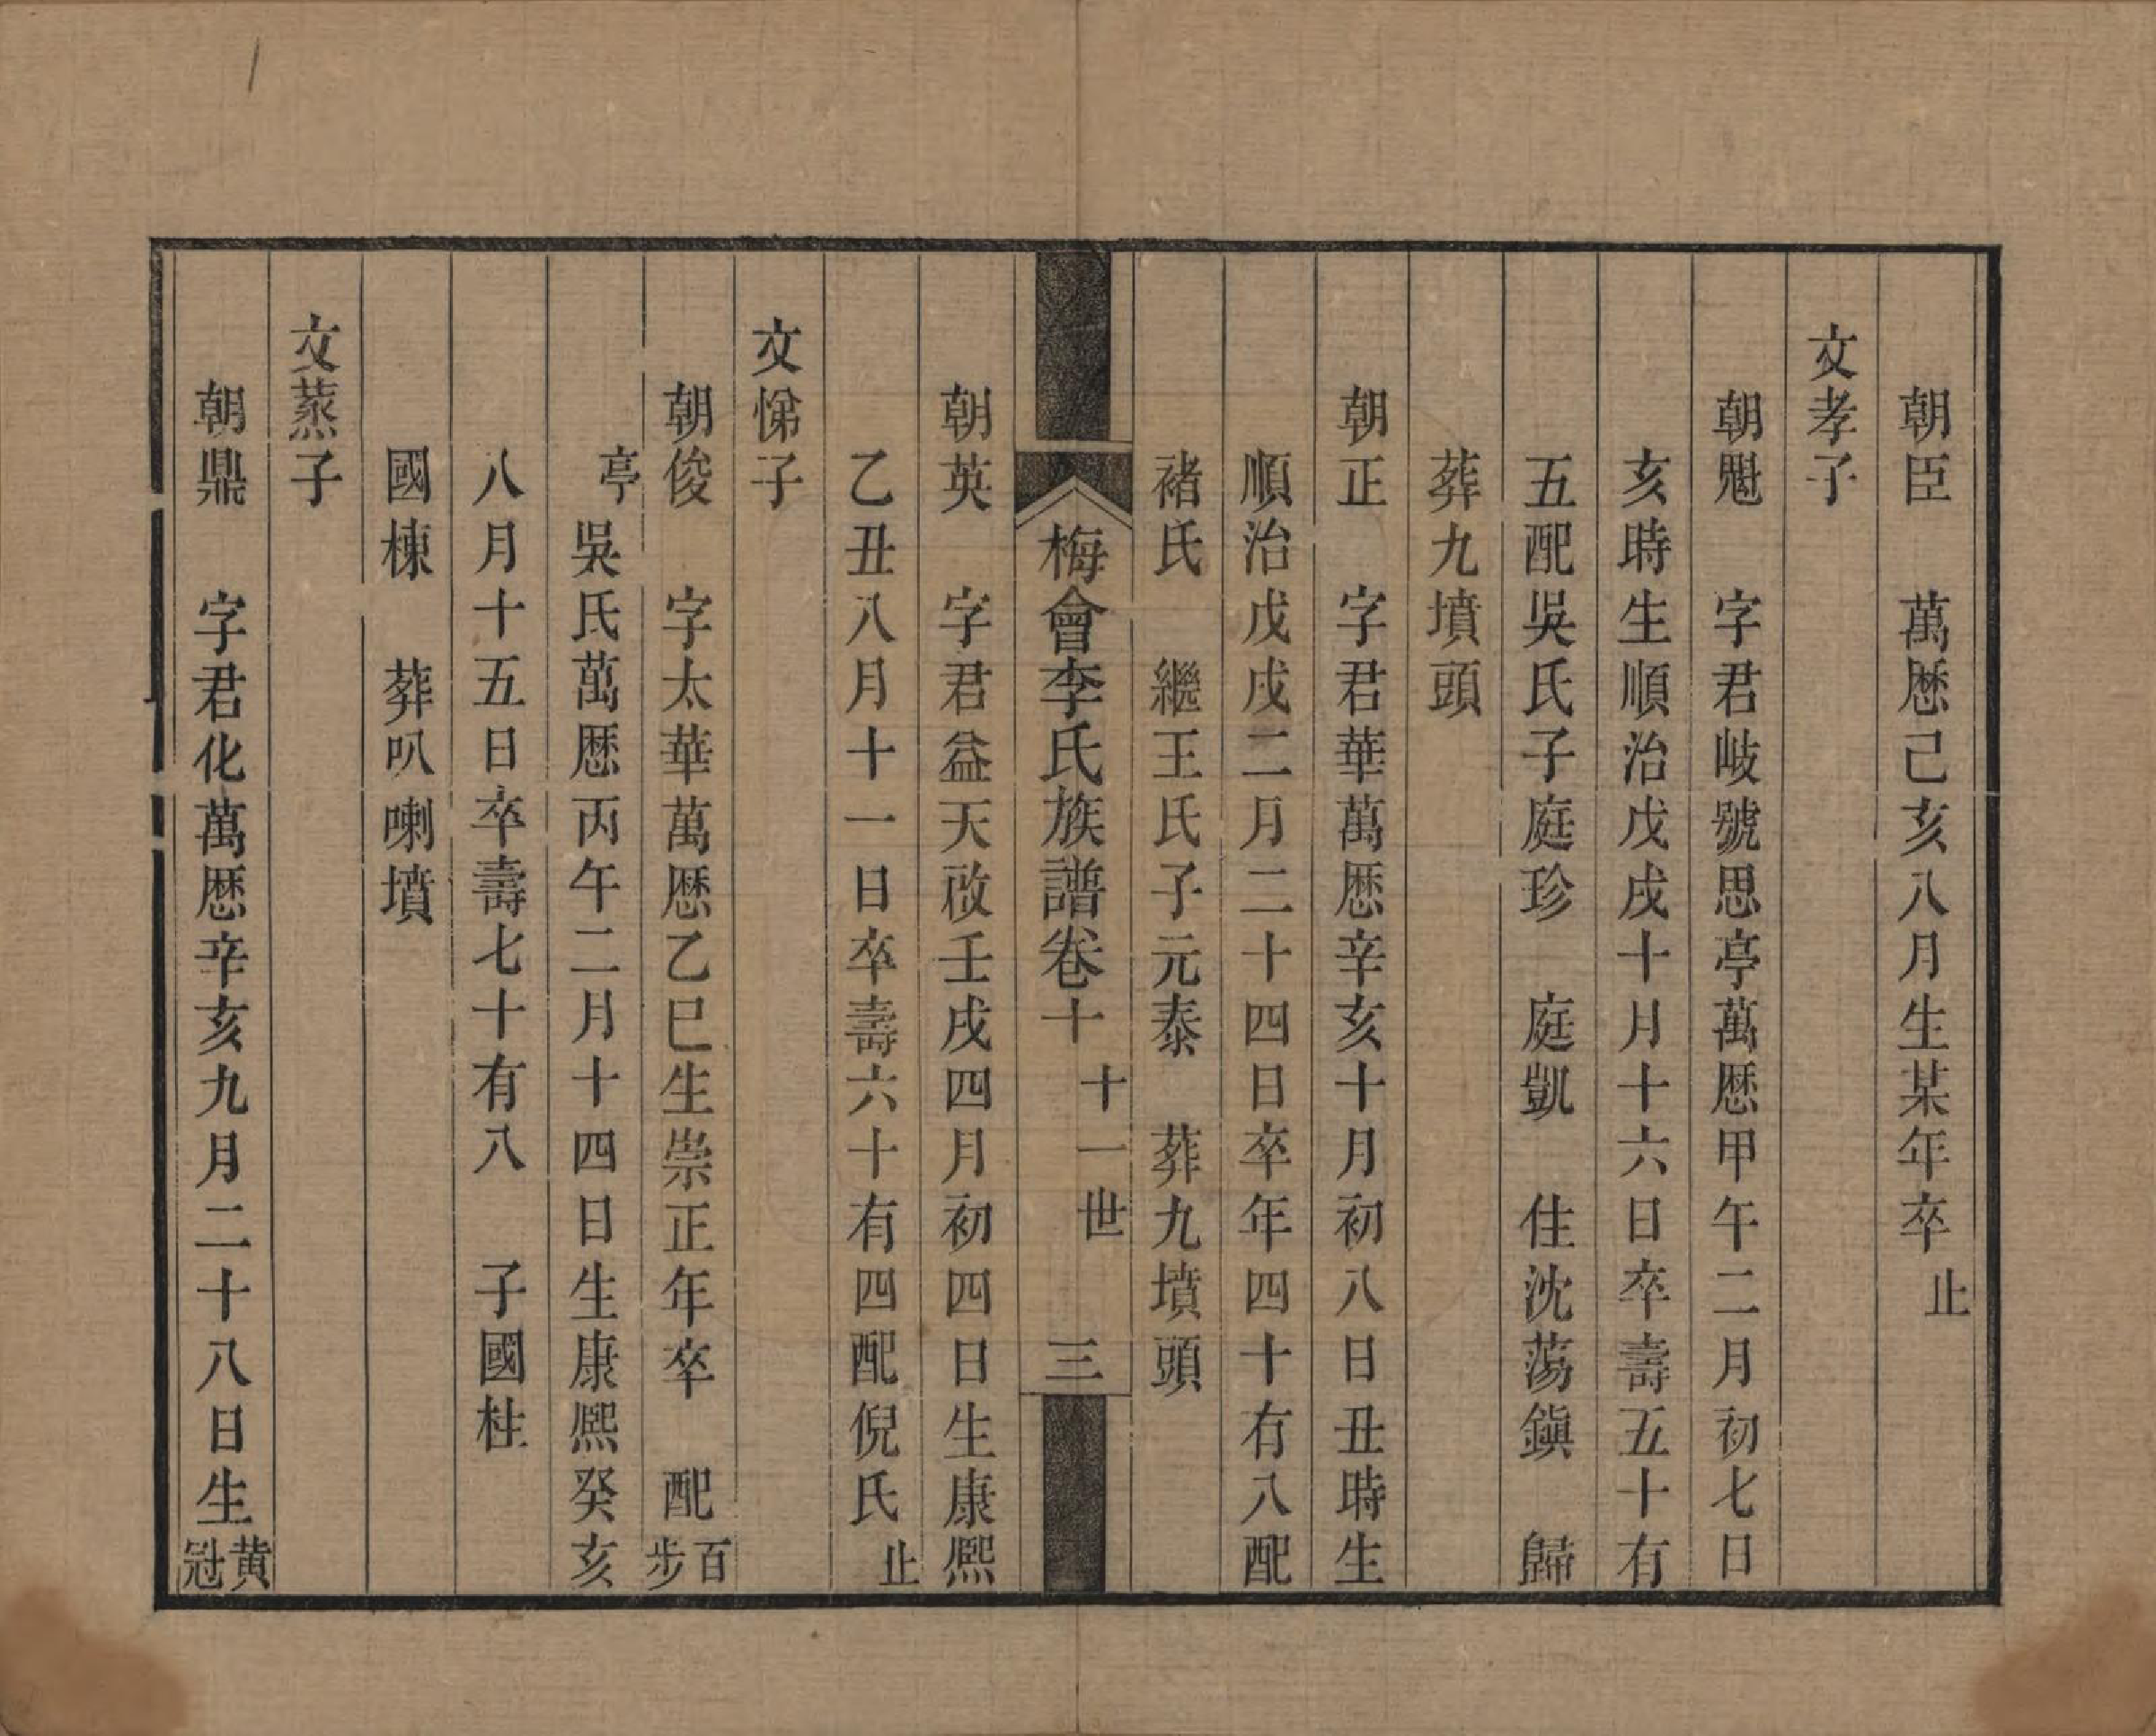 朝臣　萬厯己亥八月生某年卒止
文孝子
朝魁　字君岐號思亭萬厯甲午二月初七日
亥時生順治戊戌十月十六日卒壽五十有
五配吳氏子庭珍　庭凱　住沈蕩鎭　歸
葬九墳頭
朝正　字君華萬厯辛亥十月初八日丑時生
順治戊戌二月二十四日卒年四十有八配
褚氏　繼王氏子元泰　葬九墳頭
梅會李氏族譜卷十　十一世　三
朝英　字君益天啟壬戌四月初四日生康熙
乙丑八月十一日卒壽六十有四配倪氏止
文悌子
朝俊　字太華萬厯乙巳生崇正年卒　配百步
亭吳氏萬厯丙午二月十四日生康熙癸亥
八月十五日卒壽七十有八　子國柱
國棟　葬叺喇墳
文蒸子
朝鼎　字君化萬厯辛亥九月二十八日生黄冠